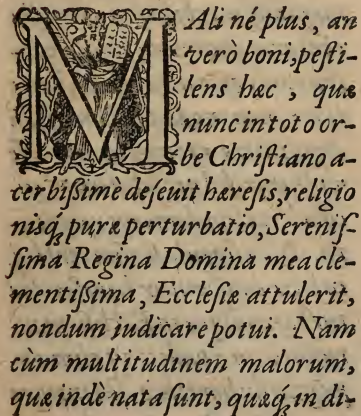 MAli né plus, an
verò boni, pesti-
lens hæc, quæ
nunc in toto or-
be Christiano a-
cerbißimè deseuit hæresis, religio
nisq́; puræ perturbatio, Serenis-
sima Regina Domina mea cle-
mentißima, Ecclesiæ attulerit,
nondum iudicare potui. Nam
cùm multitudinem malorum,
quæ indè nata sunt, quæq́; in di-